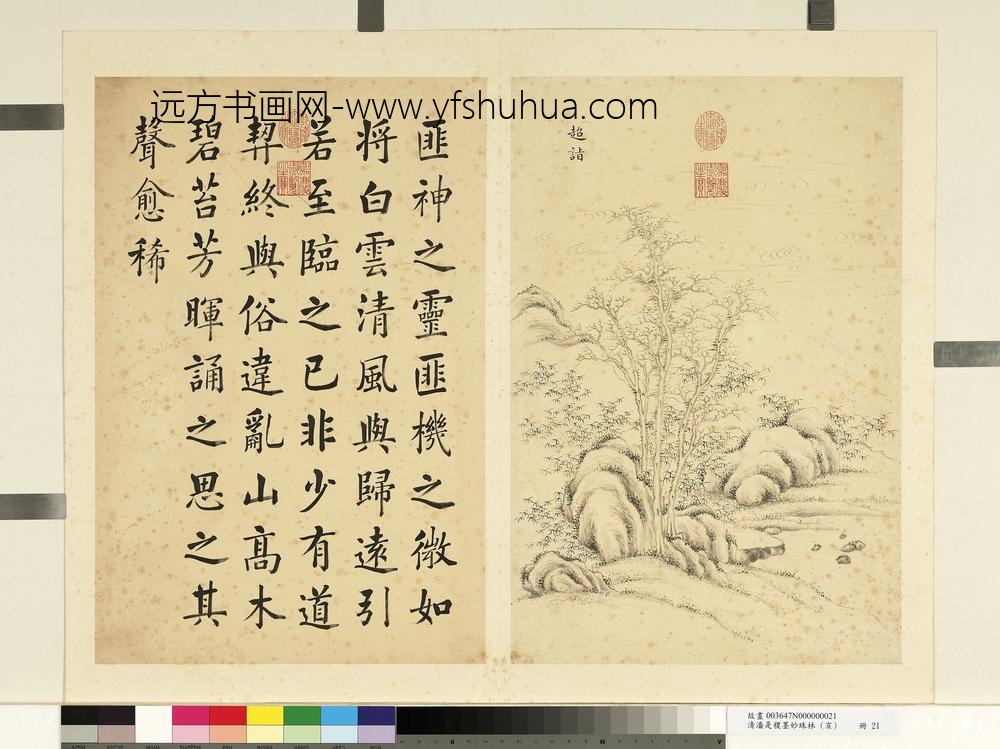 远方书画网-www.yfshuhua.com
超詣
匪神之靈匪機之微如
将白雲清風與歸遠引
若至臨之已非少有道
契終與俗違亂山高木
碧苔芳暉誦之思之其
聲愈稀
故畫 003647N000000021
清潘是稷墨妙珠林（亥） 冊 21